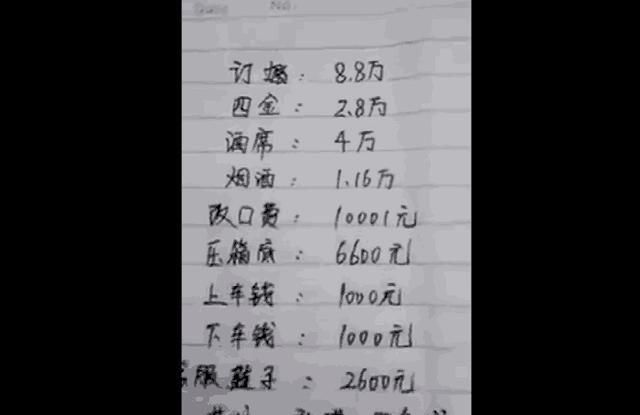 No.
订婚：8.8万
四金：2.8万
酒席：4万
烟酒：1.16万
改口费：10001元
压箱底：6600元
上车钱：1000元
下车钱：1000元
服鞋子：2600元